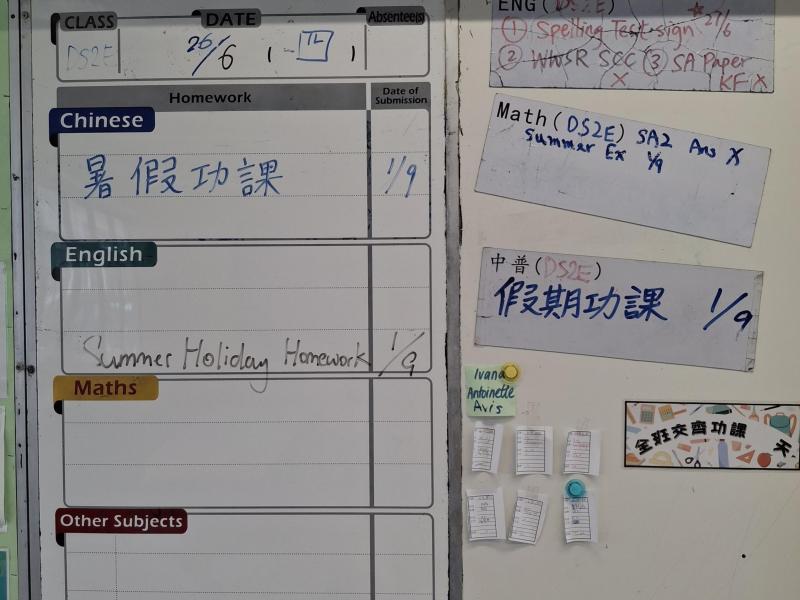 CLASS DATE Absentee(s)
DS2E 26/6 ( )
Homework Date of Submission
Chinese
暑假功課 1/9
English
Summer Holiday Homework 1/9
Maths
Other Subjects
ENG (DS2E)
① Spelling Test sign 27/6
② WWSR SCC ③ SA Paper
X KF X
Math (DS2E) SA2 Ans X
Summer Ex 1/9
中普(DS2E)
假期功課 1/9
Ivana
Antoinette
Avis
全班交齊功課 天